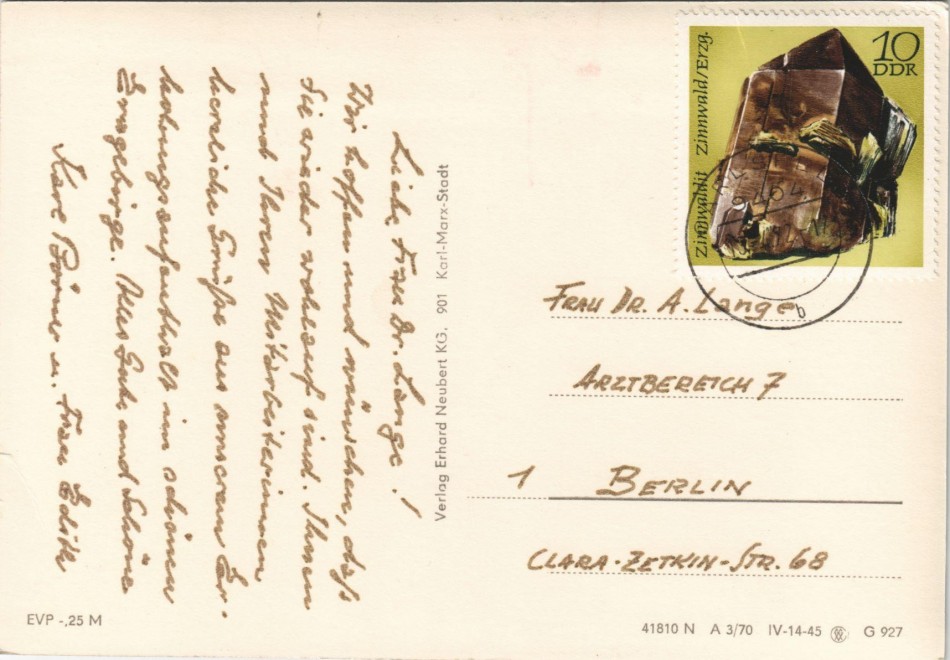 Liebe Frau Dr. Lange!
Wir hoffen und wünschen, daß
Sie wieder wohlauf sind. Ihnen
und Ihren Mitarbeiterinnen
herzliche Grüße aus unserem Er-
holungsaufenthalt im schönen
Erzgebirge. Alles Gute und Schöne
Karl Börner u. Frau Edith
Verlag Erhard Neubert KG. 901 Karl-Marx-Stadt
10
DDR
Zinnwaldit Zinnwald/Erzg.
FRAU DR. A. Lange
ARZTBEREICH 7
1 BERLIN
CLARA-ZETKIN-STR. 68
EVP -,25 M
41810 N A 3/70 IV-14-45 G 927